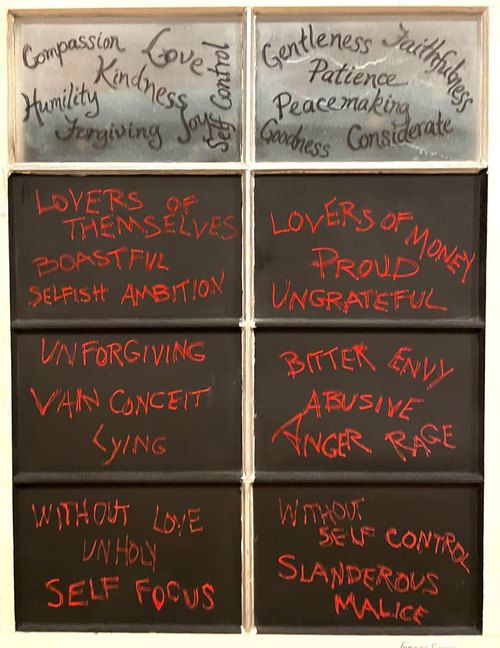 Compassion Love
Kindness
Humility
Forgiving Joy
Self Control
Gentleness Faithfulness
Patience
Peacemaking
Goodness Considerate
LOVERS OF
THEMSELVES
BOASTFUL
SELFISH AMBITION
LOVERS OF MONEY
PROUD
UNGRATEFUL
UNFORGIVING
VAIN CONCEIT
LYING
BITTER ENVY
ABUSIVE
ANGER RAGE
WITHOUT LOVE
UNHOLY
SELF FOCUS
WITHOUT
SELF CONTROL
SLANDEROUS
MALICE